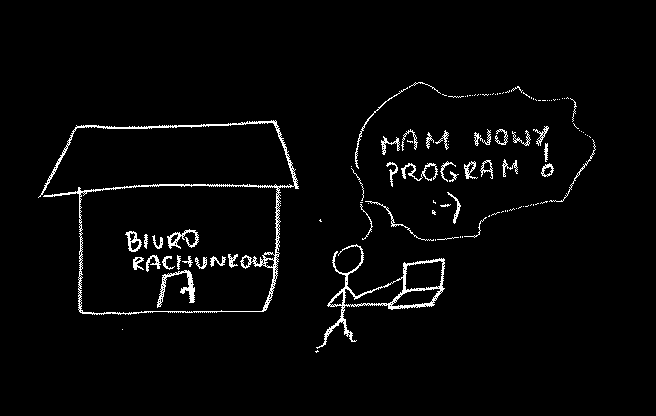 BIURO
RACHUNKOWE
MAM NOWY
PROGRAM !
:-)